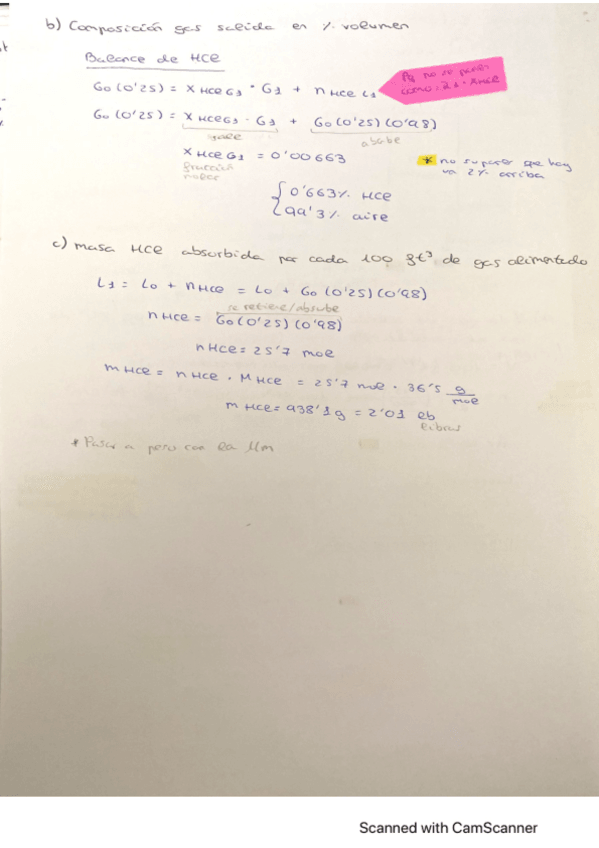 b) Composición gas salida en % volumen
Balance de HCl
G0 (0'25) = x HCl G1 · G1 + n HCl L1
Pq no se puede
como: L1 · x HCl
G0 (0'25) = x HCl G1 · G1 + G0 (0'25) (0'98)
sale
absorbe
x HCl G1 = 0'00663
fracción
molar
* no suponer que hay
un 2% arriba
0'663% HCl
99'3% aire
c) masa HCl absorbida por cada 100 ft³ de gas alimentado
L1 = L0 + n HCl = L0 + G0 (0'25) (0'98)
se retiene/absorbe
n HCl = G0 (0'25) (0'98)
n HCl = 25'7 mol
m HCl = n HCl · M HCl = 25'7 mol · 36'5 g/mol
m HCl = 938'1g = 2'01 lb
libras
* Pasar a peso con la Mm
Scanned with CamScanner